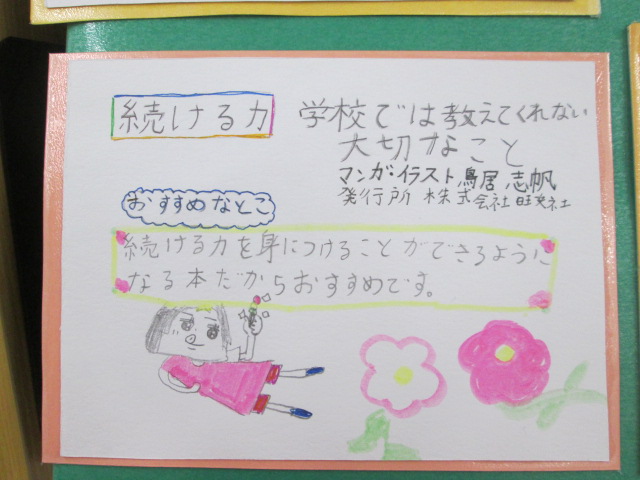 続ける力
学校では教えてくれない
大切なこと
マンガ・イラスト鳥居 志帆
発行所 株式会社旺文社
おすすめなとこ
続ける力を身につけることができるように
なる本だからおすすめです。